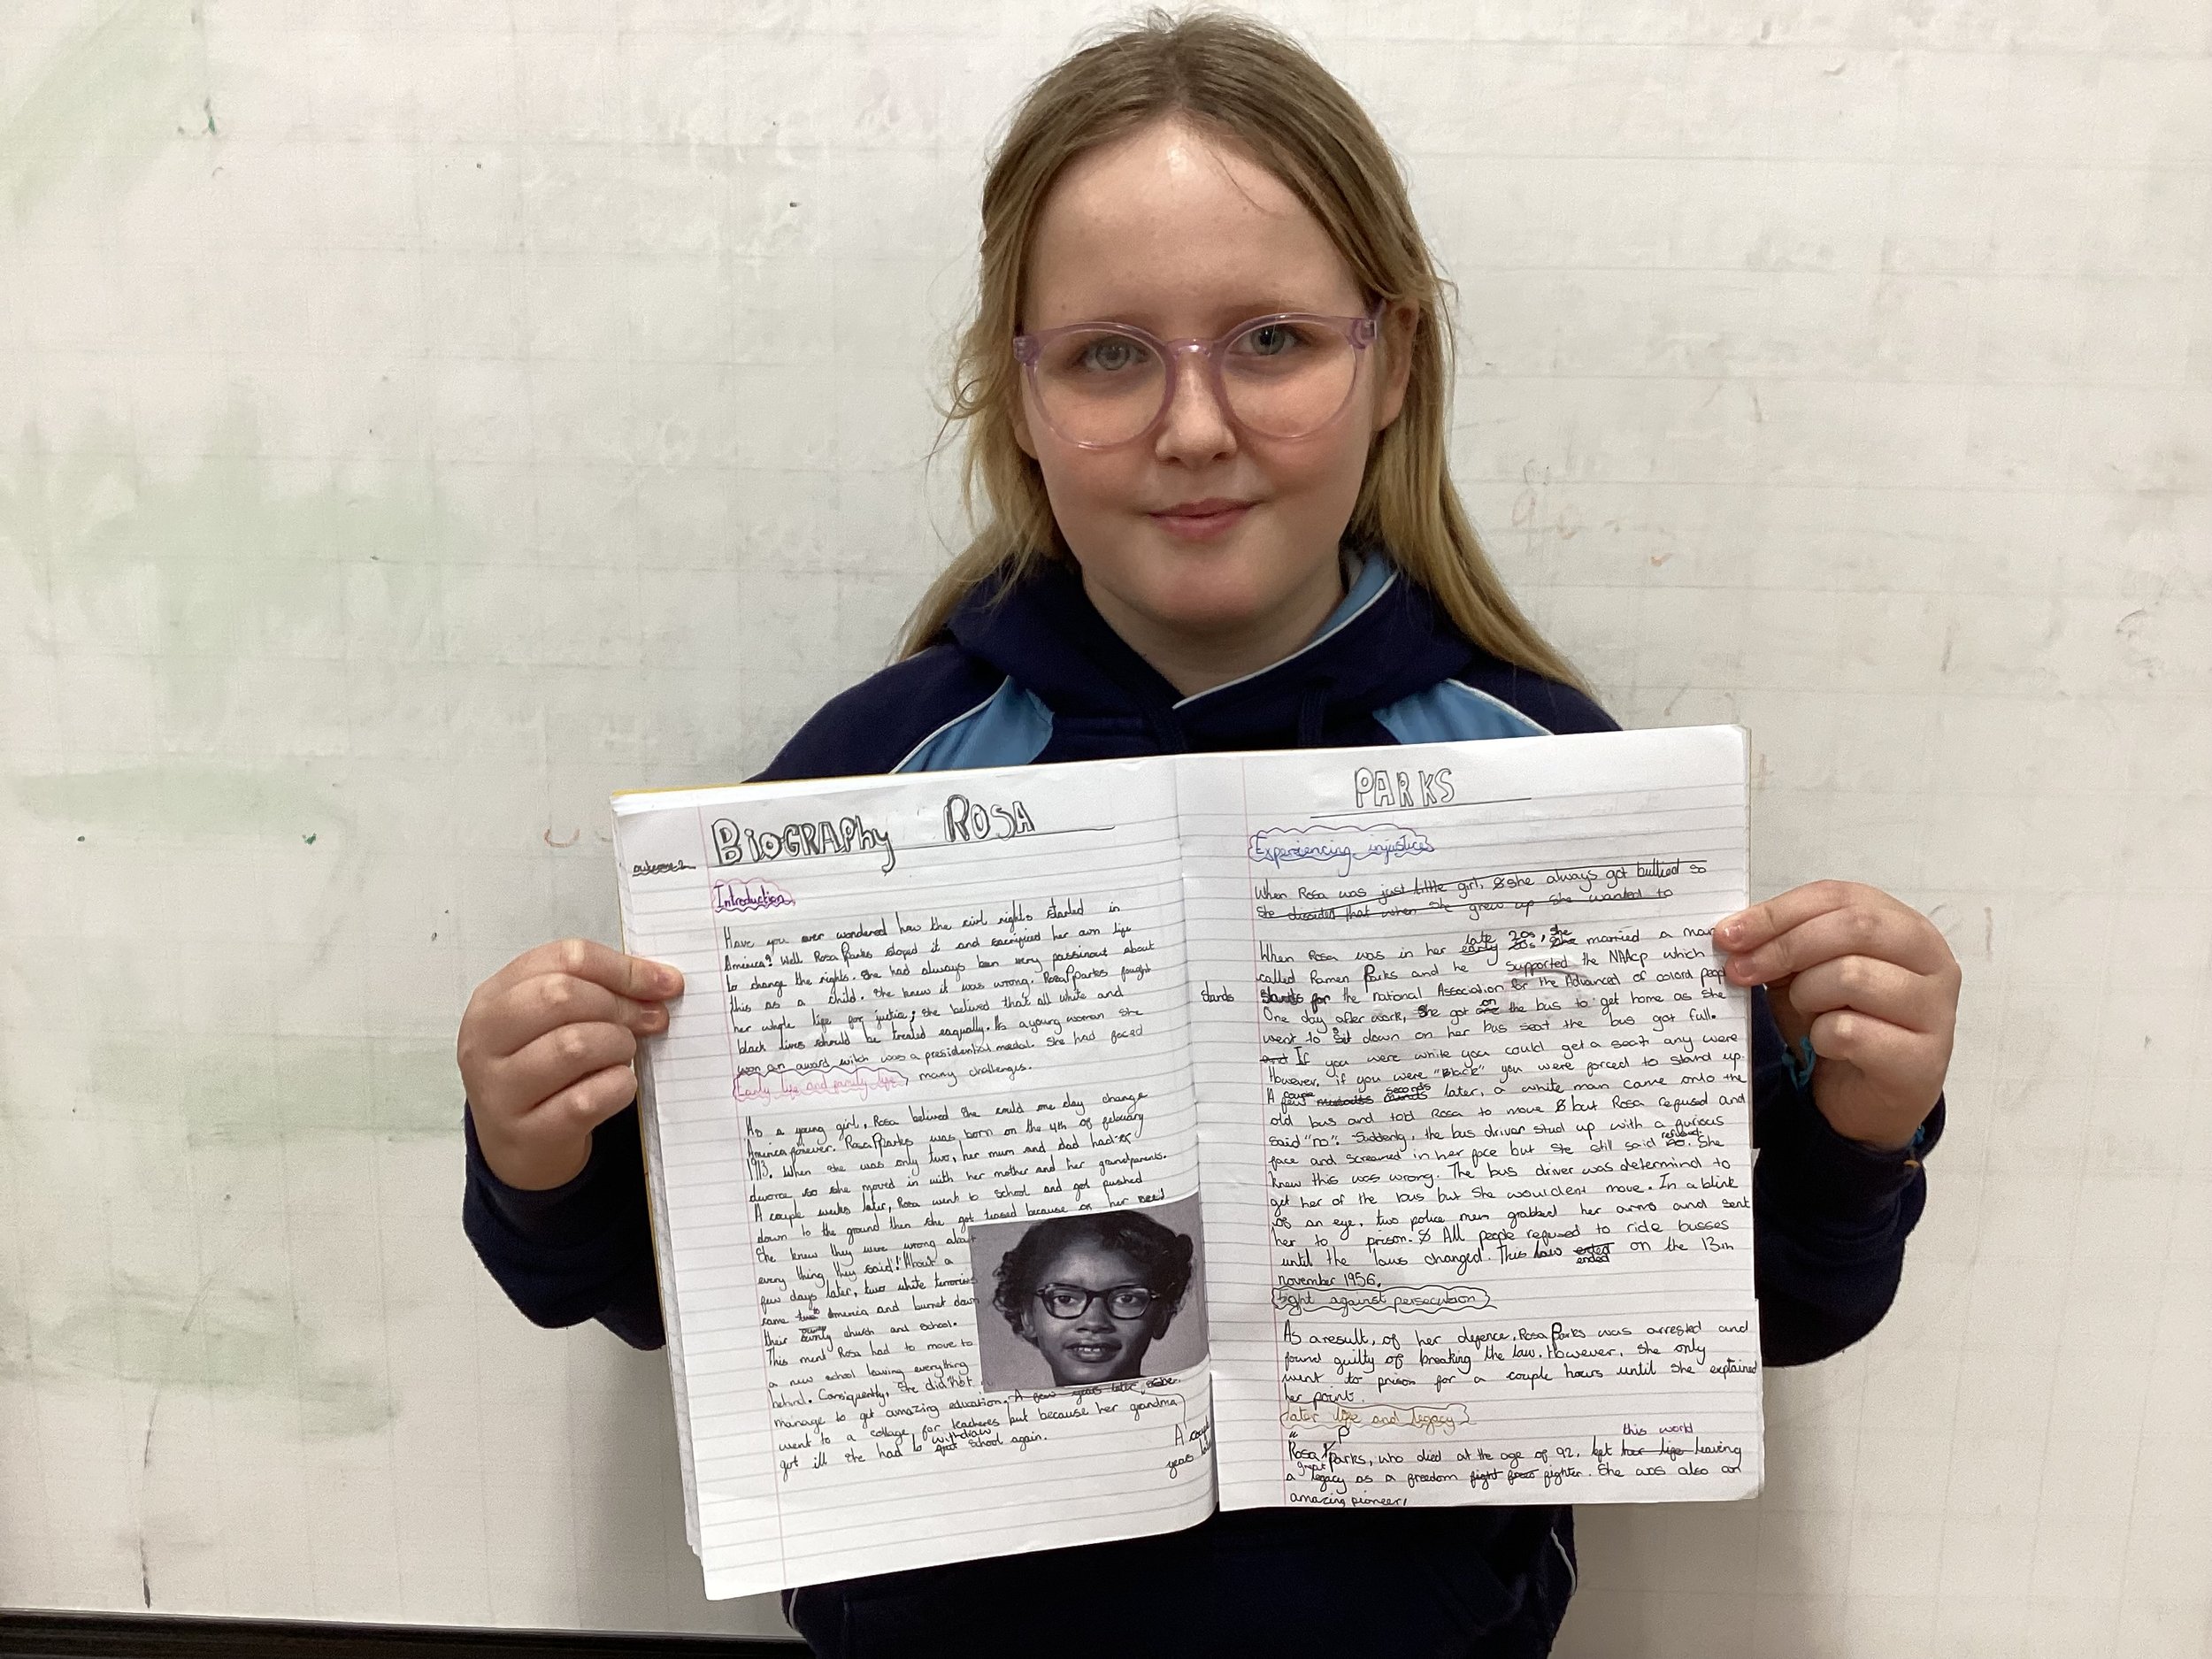 BIOGRAPHY ROSA
outcome 2
Introduction
Have you ever wondered how the civil rights started in
America? Well Rosa Parks stoped it and sacrificed her own life
to change the rights. She had always been very passinout about
this as a child. She knew it was wrong. Rosa Parks fought
her whole life for justice; she belived that all white and
black lives should be treated eaqually. As a young woman she
won an award witch was a presidential medal. She had faced
many challenges.
Early life and family life
As a young girl, Rosa belived she could one day change
America forever. Rosa Parks was born on the 4th of febuary
1913. When she was only two, her mum and dad had a
divorce so she moved in with her mother and her grandparents.
A couple weeks later, Rosa went to school and got pushed
down to the ground then she got teased because of her
She knew they were wrong about
every thing they said! About a
few days later, two white terrorists
came to America and burnet down
their family church and school.
This ment Rosa had to move to
a new school leaving everything
behind. Consiquently, she did not
manage to get amazing education. A few years later,
went to a collage for teacheres but because her grandma
got ill she had to withdraw school again.
A couple
years later
PARKS
Experiencing injustice
When Rosa was just little girl, she always got bullied so
She dissided that when she grew up she wanted to
When Rosa was in her early late 20s, she married a man
called Ramen Parks and he supported the NAAcp which
stands for the national Association for the Advanced of colord people
One day after work, She got on the bus to get home as she
went to sit down on her bus seat the bus got full.
and If you were white you could get a seat any were
However, if you were "Black" you were forced to stand up.
A few couple seconds later, a white man came onto the
old bus and told Rosa to move but Rosa refused and
said "no". Suddenly, the bus driver stud up with a furious
face and screamed in her face but she still said refused. She
knew this was wrong. The bus driver was determind to
get her of the bus but she wouldent move. In a blink
of an eye, two police men grabbed her arms and sent
her to prison. All people refused to ride busses
until the laws changed. This law ended on the 13th
november 1956.
fight against persecution
As a result, of her defence, Rosa Parks was arrested and
found guilty of breaking the law. However, she only
went to prison for a couple hours until she explained
her point.
later life and legacy
Rosa Parks, who died at the age of 92, left this world leaving
a great legacy as a freedom fighter. She was also an
amazing pioneer,